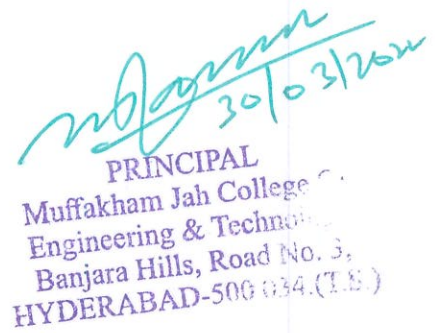 30/03/2022
PRINCIPAL
Muffakham Jah College
Engineering &
Banjara Hills, Road No. 3,
HYDERABAD-500 034.(T.S.)